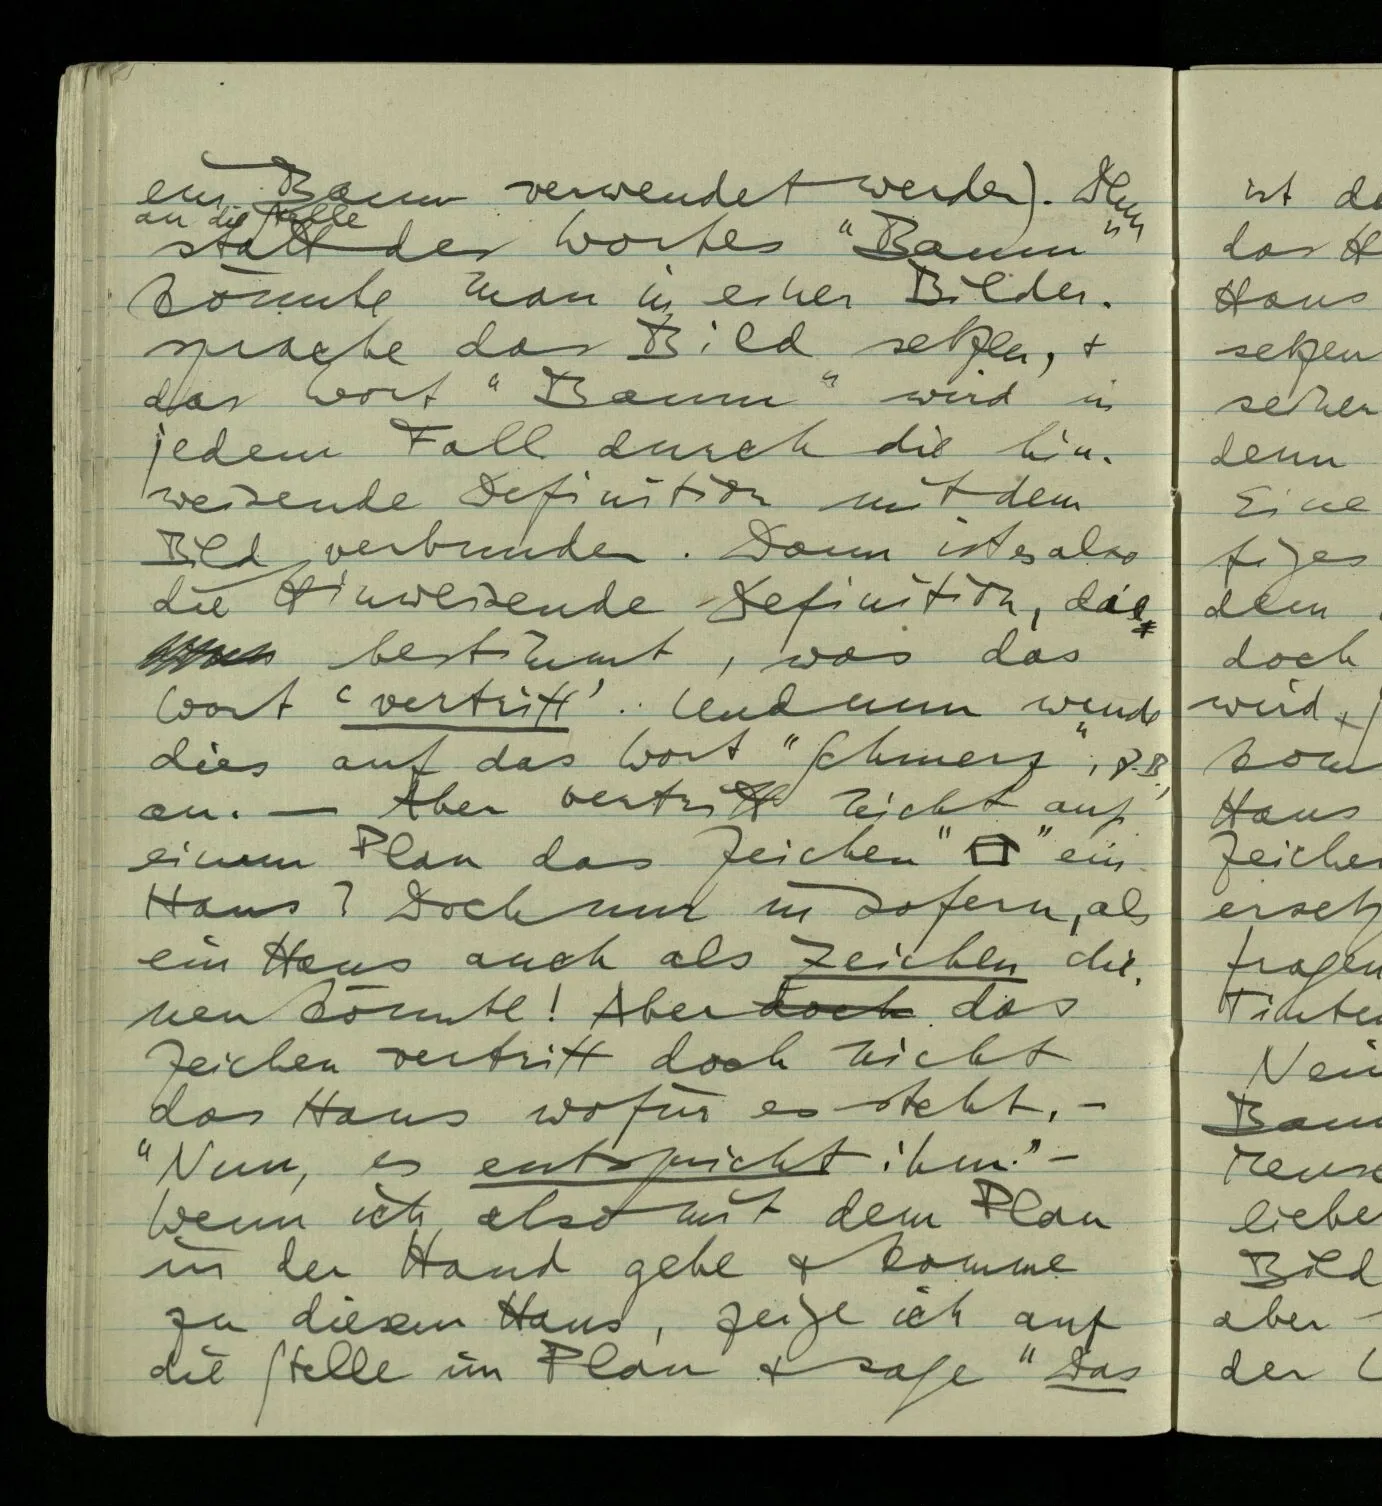 ein Baum verwendet werden). Denn
an die Stelle
statt des Wortes "Baum"
könnte man in einer Bilder-
sprache das Bild setzen, +
das Wort "Baum" wird in
jedem Fall durch die hin-
weisende Definition mit dem
Bild verbunden. Dann ist es also
die Hinweisende Definition, die
bestimmt, was das
Wort 'vertritt'. Und nun wende
dies auf das Wort "Schmerz", z.B.,
an. — Aber vertritt nicht auf
einem Plan das Zeichen "□" ein
Haus? Doch nur in sofern, als
ein Haus auch als Zeichen die-
nen könnte! Aber doch das
Zeichen vertritt doch nicht
das Haus wofür es steht. –
"Nun, es entspricht ihm." –
Wenn ich also mit dem Plan
in der Hand gehe + komme
zu diesem Haus, zeige ich auf
die Stelle im Plan + sage "Das
ist
das H
Haus
setzen
seiner
denn
Eine
dem
doch
wird +
Haus
Zeichen
ersetz
fragen
Tinten
Nein
Baum
liebe
Bild
aber
der